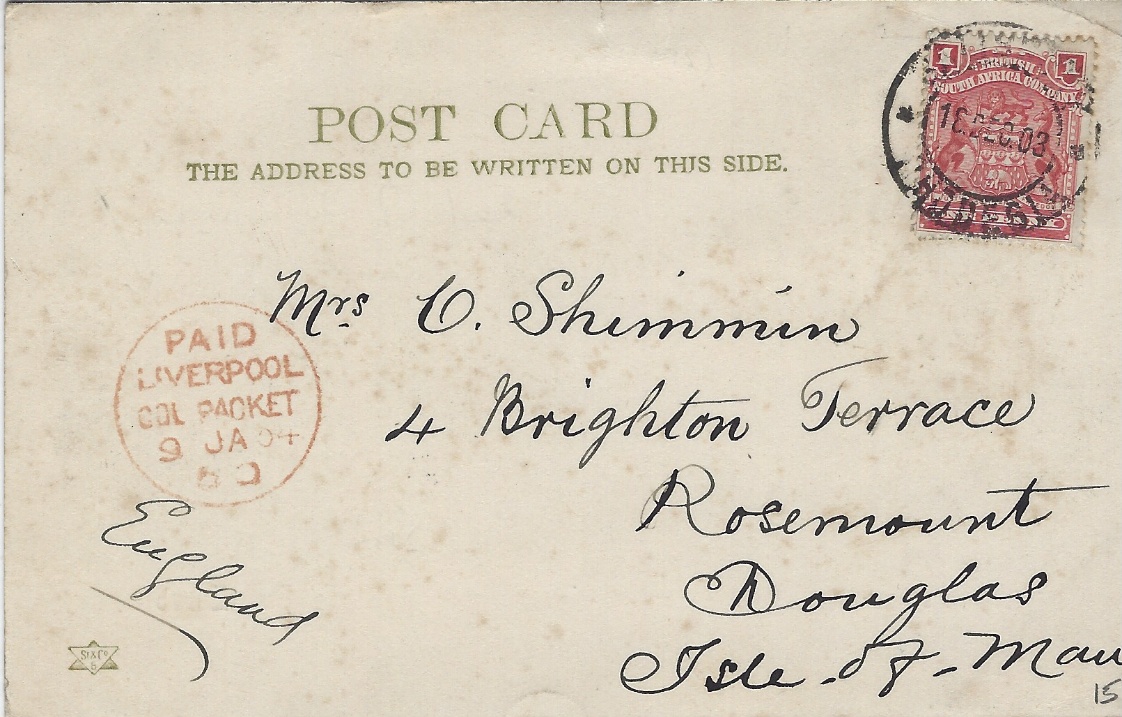 POST CARD
THE ADDRESS TO BE WRITTEN ON THIS SIDE.
1 BRITISH 1
SOUTH AFRICA COMPANY
DEC 03
RHODESIA
Mrs C. Shimmin
4 Brighton Terrace
Rosemount
Douglas
Isle-of-Man
PAID
LIVERPOOL
COL PACKET
9 JA 04
England
St & Co
15